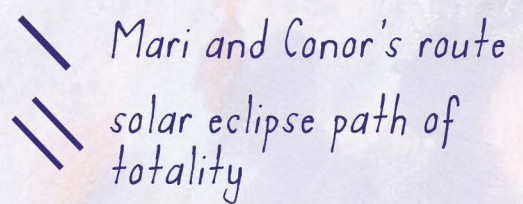 Mari and Conor's route
solar eclipse path of
totality